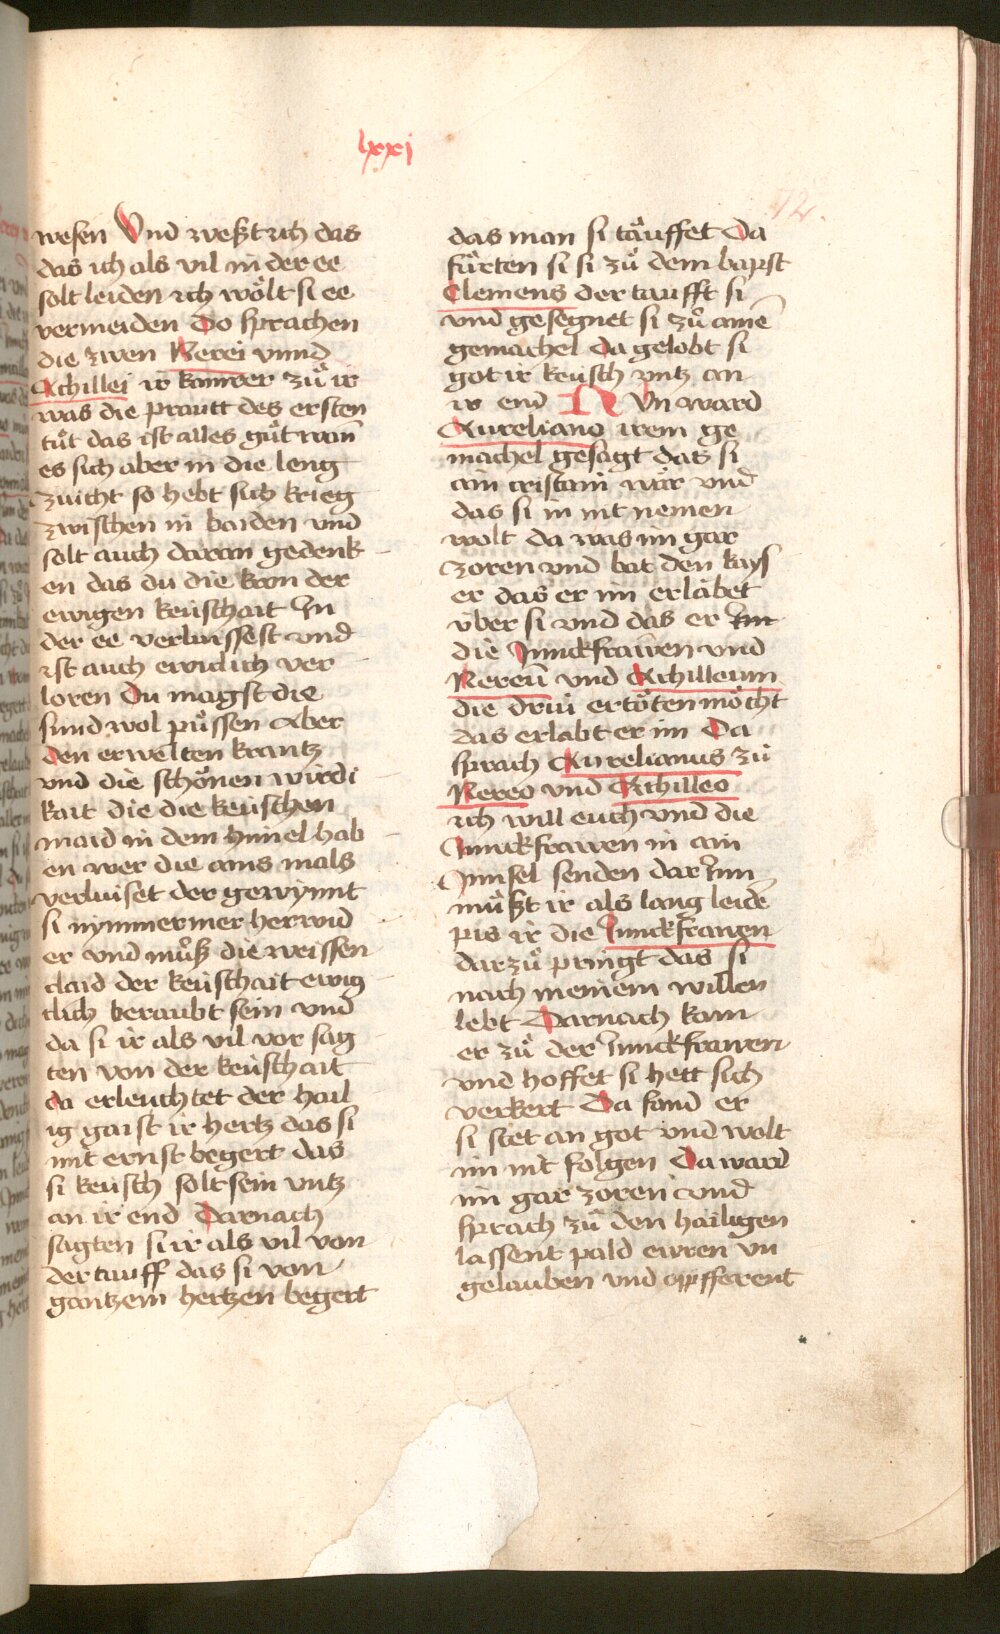 lxxi
72.
wesen Vnd weßt ich das
das ich als vil in der ee
solt leiden ich wo̊lt si ee
vermeiden Do sprachen
die zwen Nerei vnnd
Achillei ir kamrer zů ir
was die prautt des ersten
tůt das ist alles gůt wan̄
es sich aber in die leng
zuicht so hebt sich krieg
zwischen in baiden vnd
solt auch daran gedenk
en das du die kron der
ewigen keüschait In
der ee verluissest vnd
ist auch ewiclich ver
loren Du magst die
sünd wol püssen Aber
den erwelten krantz
vnd die schönen wirdi
kait die die keüschen
maid in dem himel hab
en wer die ains mals
verluiset der gewÿnnt
si nymmermer herwid
er vnd můß die weissen
claid der keüschait ewig
clich beraubt sein vnd
da si ir als vil vor sag
ten von der keüschait
da erleuchtet der hail
ig gaist ir hertz das si
mit ernst begert das
si keüsch solt sein vntz
an ir end Darnach
sagten si ir als vil von
der tauff das si von
gantzem hertzen begert
das man si täuffet Da
fürten si si zů dem bapst
Clemens der taufft si
vnd gesegnet si zů aine̅
gemachel da gelobt si
got ir keüsch vntz an
ir end NVn ward
Aureliano irem ge
machel gesagt das si
ain cristani wär vnd
das si in nit nemen
wolt da was im gar
zoren vnd bat den kays
er das er im erlabet
über si vnd das er Im
die Junckfrawen vnd
Nereü vnd Achilleum
die drüi ertöten möcht
das erlabt er im Da
sprach Aurelianus zů
Nereo vnd Achilleo
ich will euch vnd die
Junckfrawen in ain
Jnnsel senden dar Inn
můßt ir als lang leide̅
pis ir die Junckfrawen
darzů pringt das si
nach meinem willen
lebt Darnach kam
er zů der Junckfrawen
vnd hoffet si hett sich
verkert Da fand er
si stet an got vnd wolt
im nit folgen Da ward
im gar zoren vnd
sprach zů den hailigen
lassent pald ewren vn
gelauben vnd opfferent